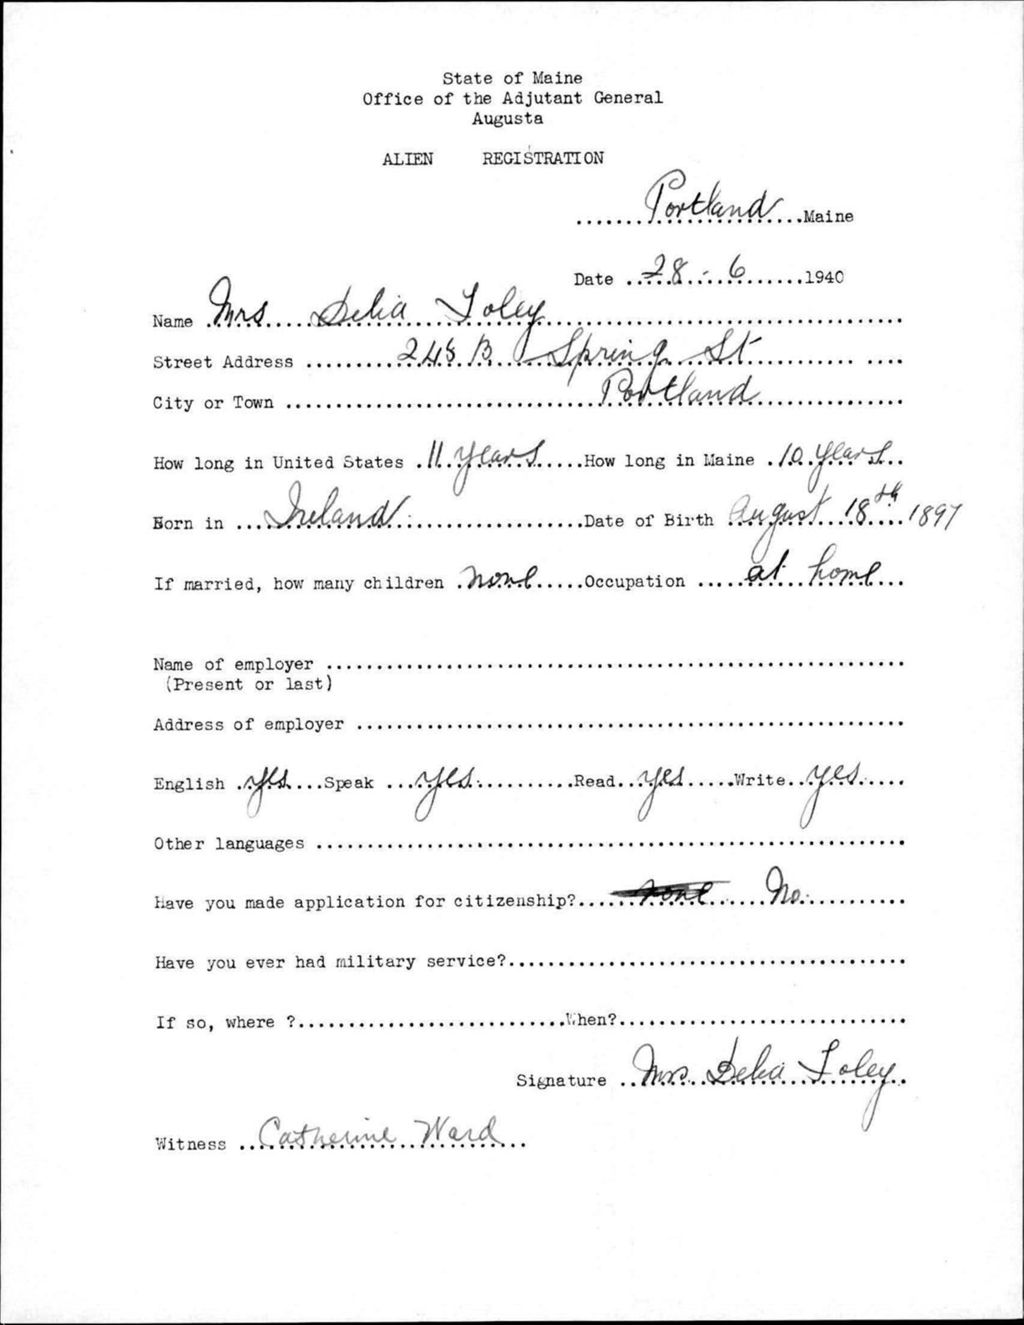 State of Maine
Office of the Adjutant General
Augusta
ALIEN REGISTRATION
Portland Maine
Date 28-6 1940
Name Mrs Delia Foley
Street Address 248 B Spring St
City or Town Portland
How long in United States 11 years How long in Maine 10 years
Born in Ireland Date of Birth August 18th 1897
If married, how many children none Occupation at home
Name of employer
(Present or last)
Address of employer
English yes Speak yes Read yes Write yes
Other languages
Have you made application for citizenship? none No.
Have you ever had military service?
If so, where ? When?
Signature Mrs. Delia Foley
Witness Catherine Ward